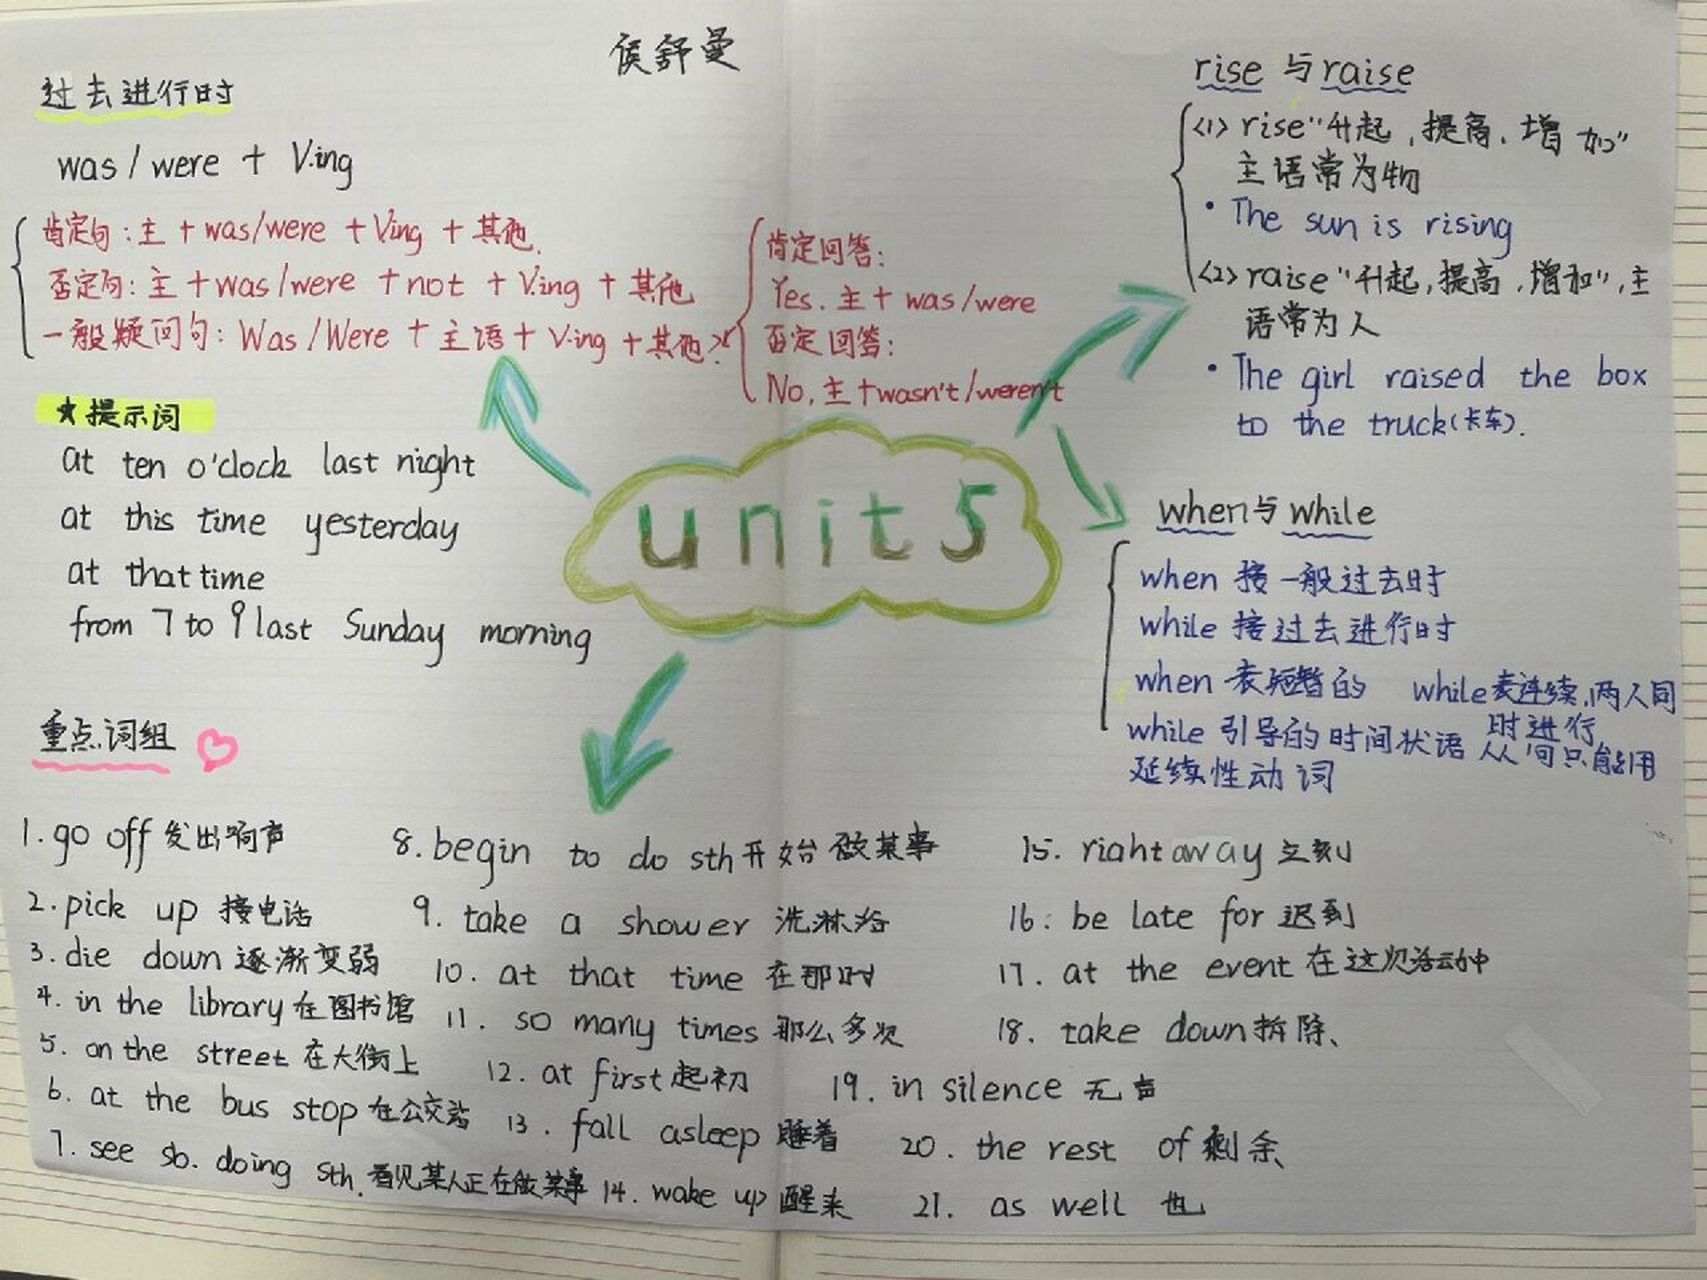 侯舒曼
过去进行时
was/were + V.ing
肯定句:主+was/were+Ving+其他.
否定句:主+was/were+not+V.ing+其他
一般疑问句:Was/Were+主语+V.ing+其他?
肯定回答:
Yes.主+was/were
否定回答:
No,主+wasn't/weren't
★提示词
at ten o'clock last night
at this time yesterday
at that time
from 7 to 9 last Sunday morning
unit 5
rise 与 raise
<1> rise"升起,提高,增加"
主语常为物
• The sun is rising
<2> raise"升起,提高,增加",主
语常为人
• The girl raised the box
to the truck(卡车).
when与while
when 接一般过去时
while 接过去进行时
when 表短暂的 while表连续,两人同
时进行
while 引导的时间状语从句只能用
延续性动词
重点词组
1.go off 发出响声
2.pick up 接电话
3.die down 逐渐变弱
4.in the library 在图书馆
5.on the street 在大街上
6.at the bus stop 在公交站
7.see sb. doing sth.看见某人正在做某事
8.begin to do sth 开始做某事
9.take a shower 洗淋浴
10.at that time 在那时
11.so many times 那么多次
12.at first 起初
13.fall asleep 睡着
14.wake up 醒来
15.right away 立刻
16.be late for 迟到
17.at the event 在这次活动中
18.take down 拆除、
19.in silence 无声
20.the rest of 剩余
21.as well 也